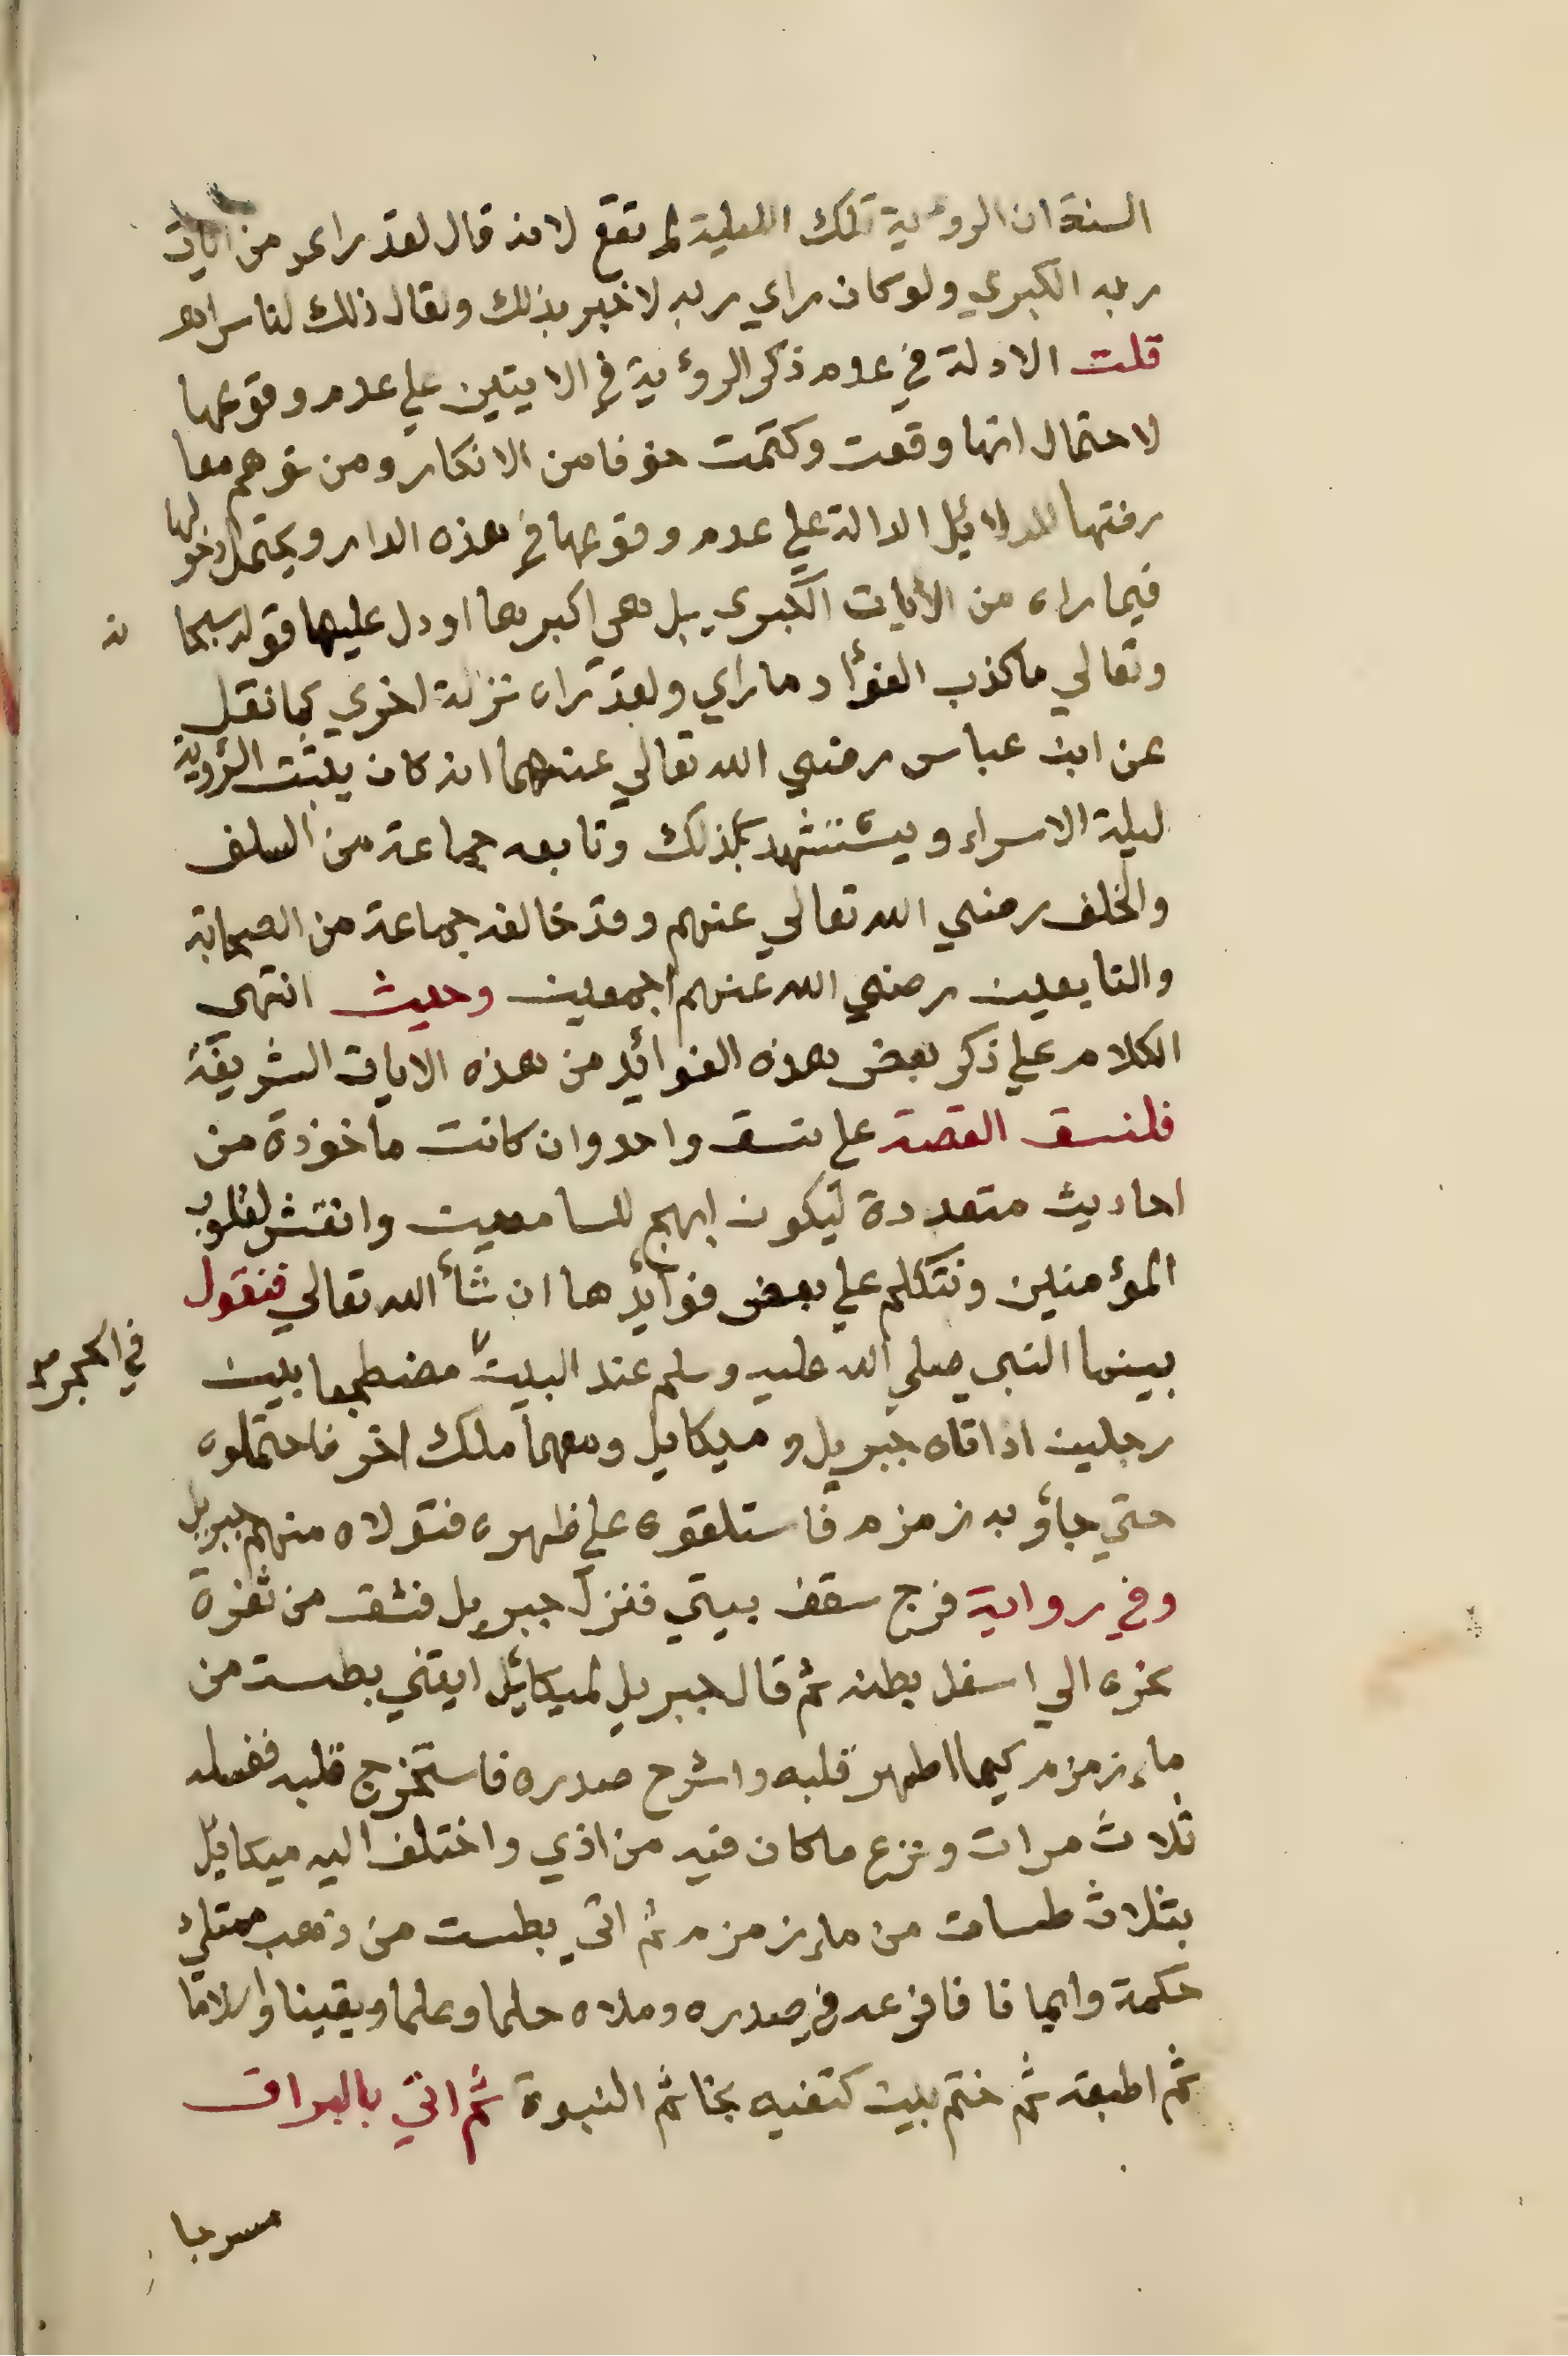 السنة ان الروءية تلك الليلة لم تقع لانه قال لقد راى من ايات
ربه الكبري ولو كان راي ربه لاخبر بذلك ولقال ذلك لنا سراهـ
قلت الادلة في عدم ذكر الروءية في الايتين علي عدم وقوعها
لاحتمال انها وقعت وكتمت خوفا من الانكار ومن توهم معا
رضتها للدلائل الدالة علي عدم وقوعها في هذه الدار ويحتمل دخولها
فيما راه من الآيات الكبرى بل هي اكبرها او دل عليها قوله سبحا نه
وتعالي ما كذب الفؤاد ما راي ولقد راه نزلة اخري كما نقل
عن ابن عباس رضي الله تعالي عنهما انه كان يثبت الرؤية
ليلة الاسراء ويستشهد بذلك وتابعه جماعة من السلف
والخلف رضي الله تعالي عنهم وقد خالفه جماعة من الصحابة
والتابعين رضي الله عنهم اجمعين وحيث انتهى
الكلام علي ذكر بعض هذه الفوائد من هذه الايات الشريفة
فلنسق القصة علي نسق واحد وان كانت ماخوذة من
احاديث متعددة ليكون ابهج للسامعين وانقش لقلوب
المؤمنين ونتكلم علي بعض فوائدها ان شأ الله تعالي فنقول
بينما النبي صلي الله عليه وسلم عند البيت مضطجعا بين
في الحجر
رجلين اذ اتاه جبريل و ميكايل ومعهما ملك اخر فاحتملوه
حتي جاؤ به زمزم فاستلقوه علي ظهره فتولاه منهم جبريل
وفي رواية فرج سقف بيتي فنزل جبريل فشق من ثغرة
نحره الي اسفل بطنه ثم قال جبريل لميكائل ايتني بطست من
ماء زمزم كيما اطهر قلبه واشرح صدره فاستخرج قلبه فغسله
ثلاث مرات ونزع ما كان فيه من اذي واختلف اليه ميكايل
بثلاث طسات من ماء زمزم ثم اتي بطست من ذهب ممتلئ
حكمة وايمانا فافرغه في صدره وملاه حلما وعلما ويقينا واسلاما
ثم اطبقه ثم ختم بين كتفيه بخاتم النبوة ثم اتي بالبراق
مسرجا